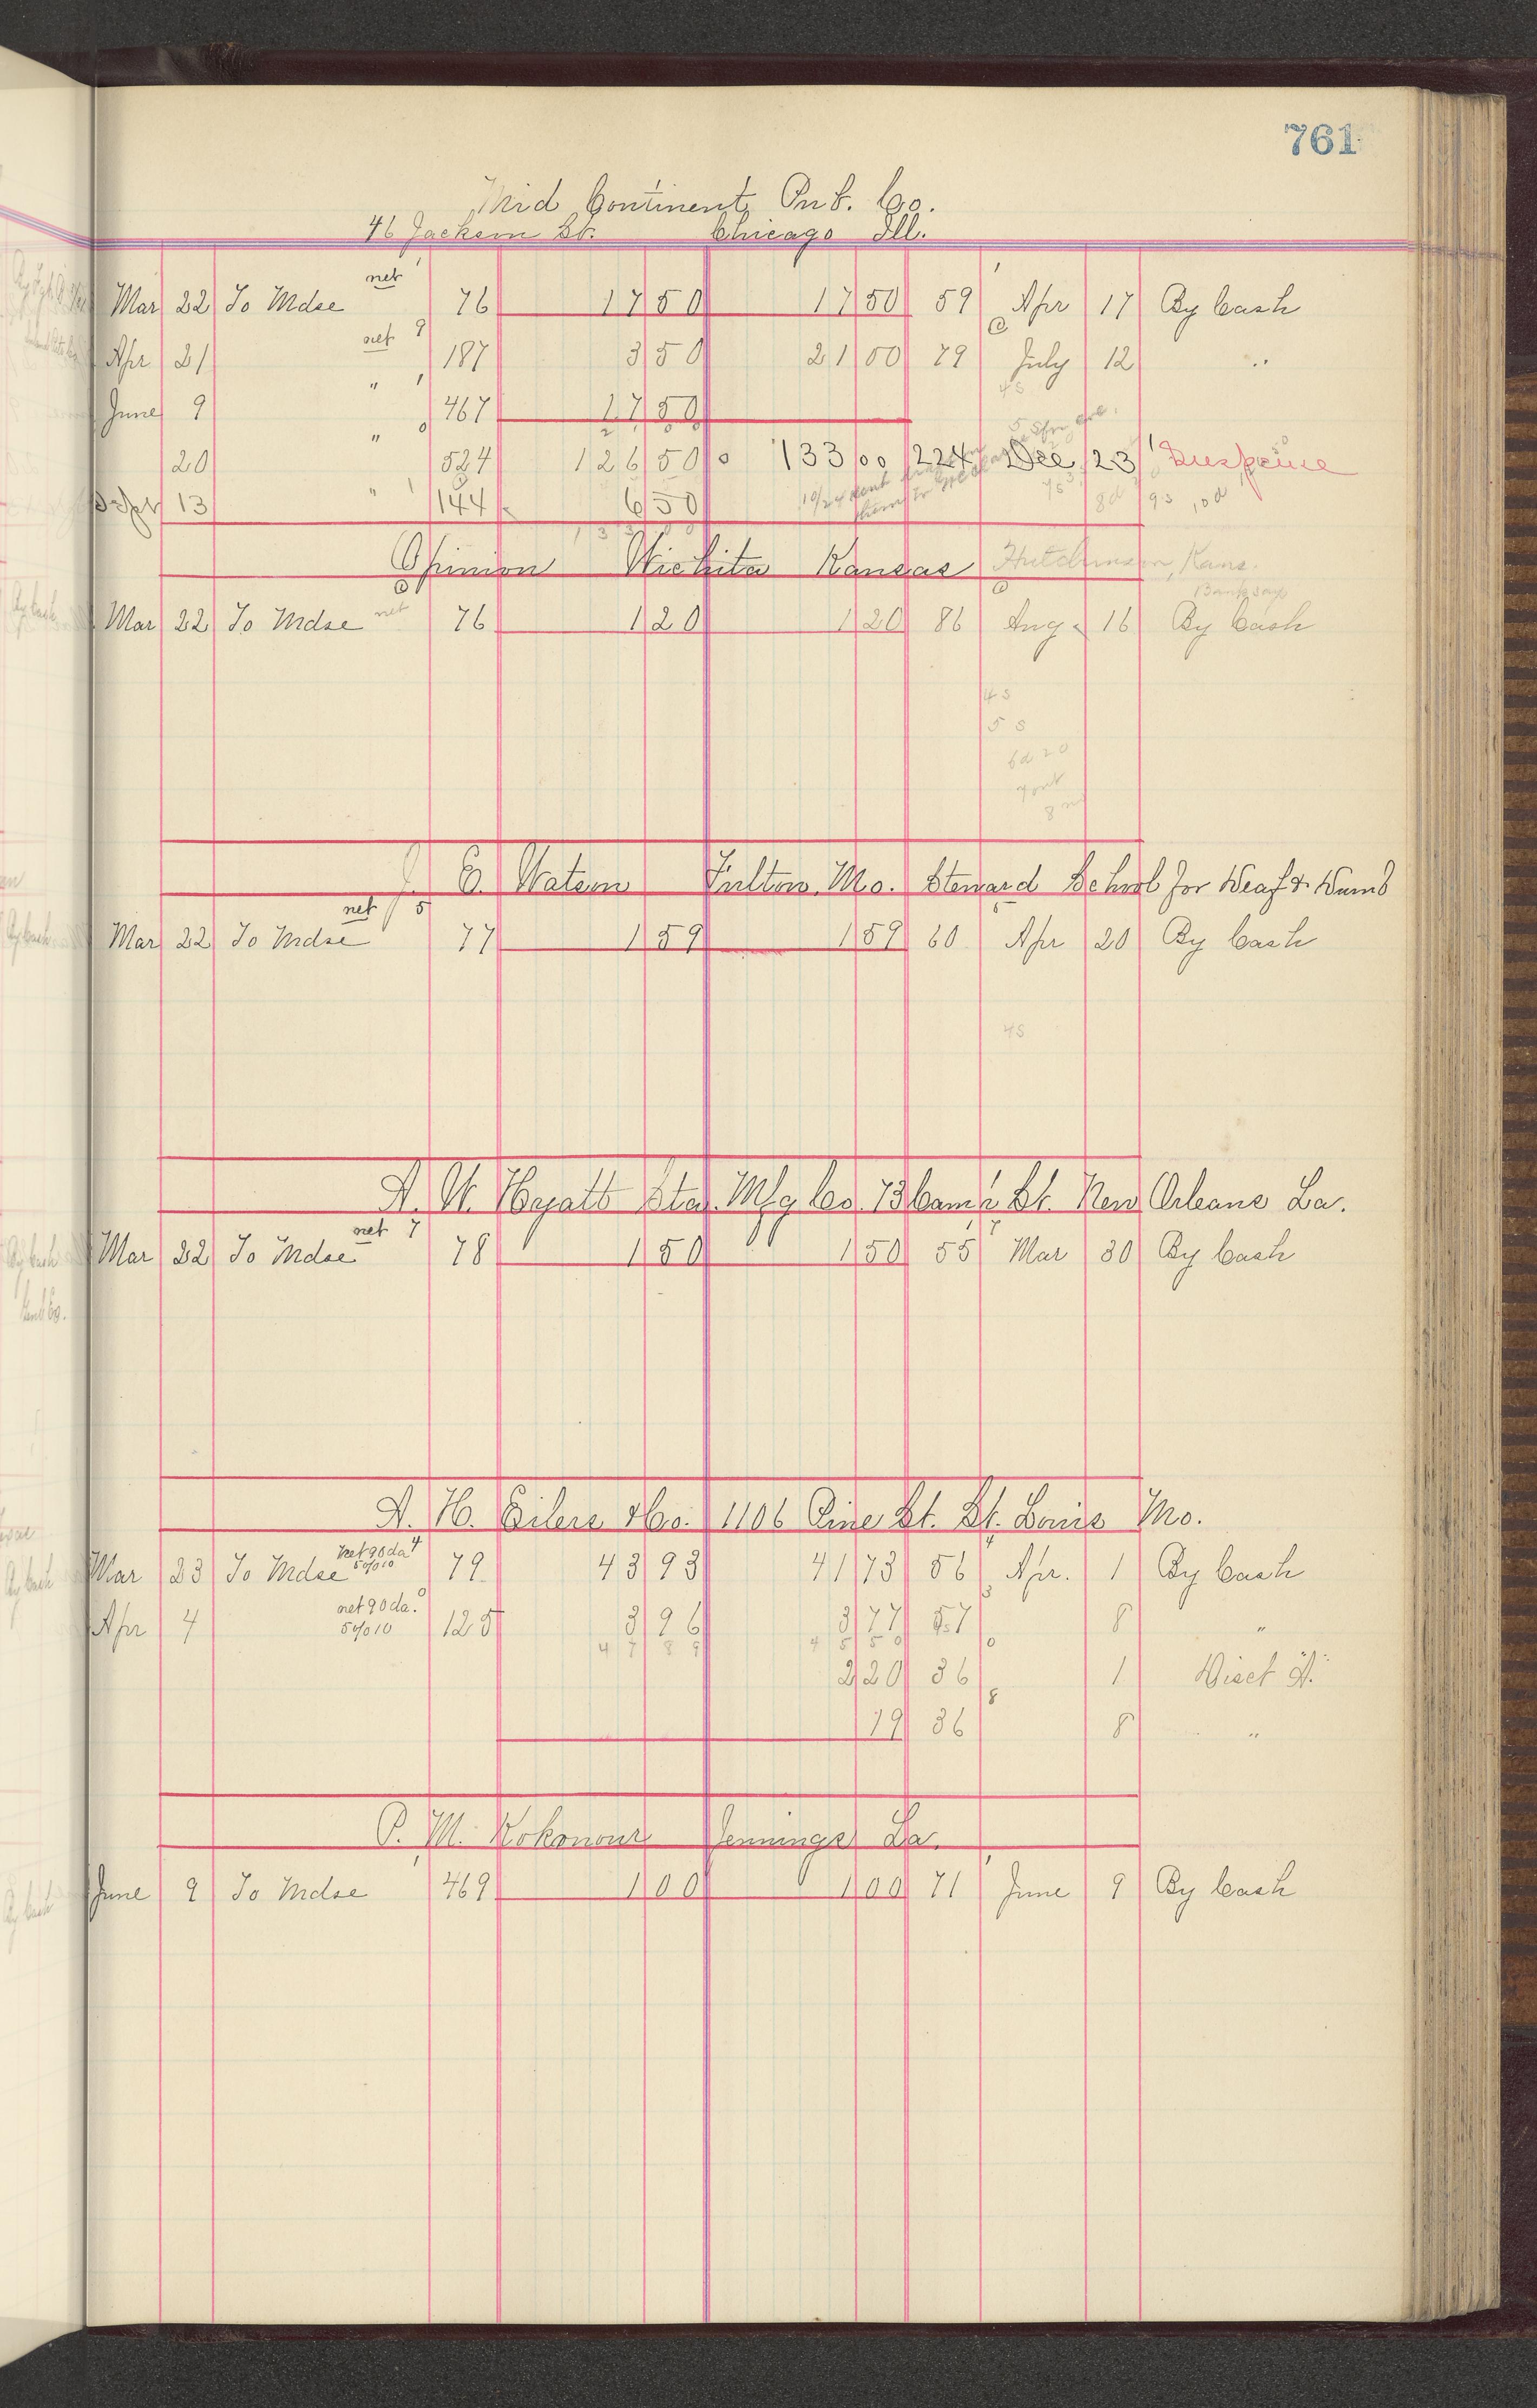 761
Mid Continent Pub. Co.
46 Jackson St. Chicago Ill.
Mar 22 To Mdse net 76 17 50 17 50 59 Apr 17 By Cash
Apr 21 net 187 3 50 21 00 79 July 12 "
June 9 " 467 17 50
20 " 524 126 50 133 00 224 Dec 23 Suspense
Sept 13 " 144 6 50
Opinion Wichita Kansas Hutchinson, Kans.
Mar 22 To Mdse net 76 1 20 1 20 86 Aug 16 By Cash
4s
5 s
6d 20
8 m
C. Watson Fulton Mo. Steward School for Deaf & Dumb
Mar 22 To Mdse net 77 1 59 1 59 60 Apr 20 By Cash
4s
A. W. Hyatt Sta. Mfg Co. St. New Orleans La.
Mar 22 To Mdse net 78 1 50 1 50 55 Mar 30 By Cash
A. H. Eilers & Co. 1106 Pine St. St. Louis Mo.
Mar 23 To Mdse net 90 da 5%10 79 43 93 41 73 56 Apr. 1 By Cash
Apr 4 net 90 da. 5%10 125 3 96 3 77 57 8 "
47 89 45 50
2 20 36 1 Disct %
19 36 8 "
P. M. Kokonour Jennings La.
June 9 To Mdse 469 1 00 1 00 71 June 9 By Cash